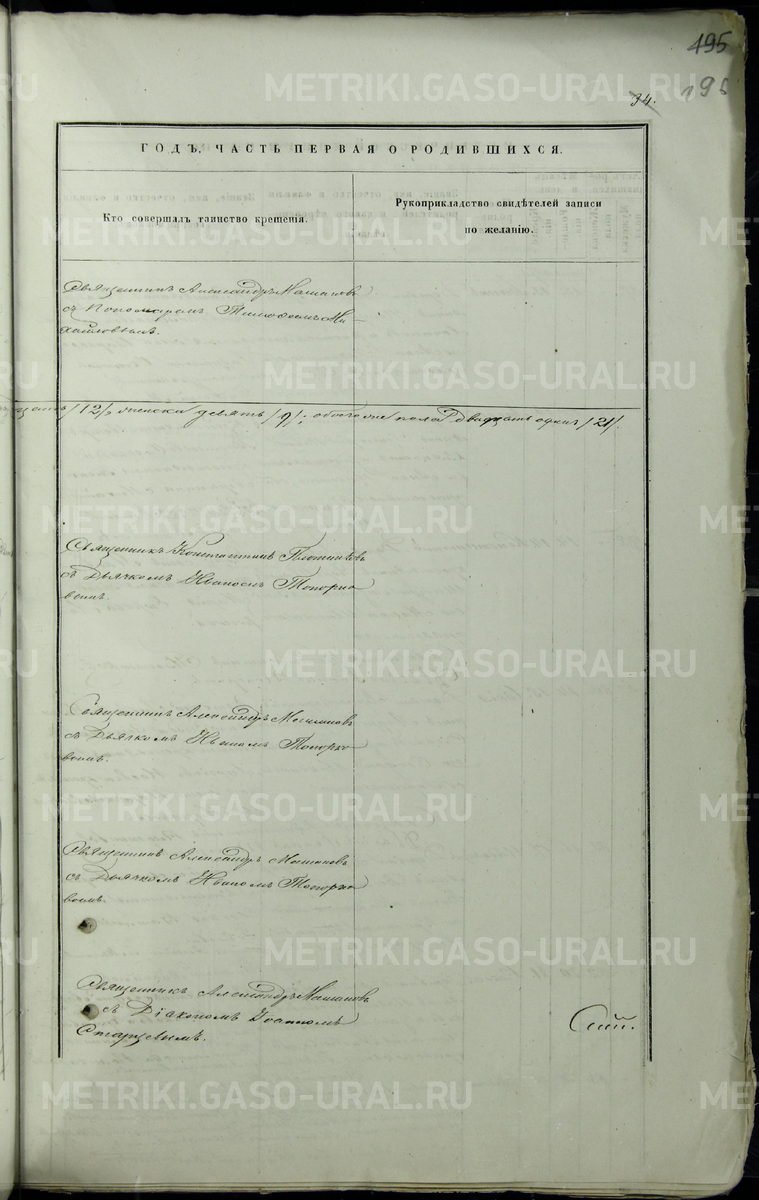 195
195
34.
METRIKI.GASO-URAL.RU
ГОДЪ, ЧАСТЬ ПЕРВАЯ О РОДИВШИХСЯ.
Кто совершалъ таинство крещенія.
Рукоприкладство свидѣтелей записи
по желанію.
Священникъ Александръ
съ Пономаремъ Тимофеемъ Ми-
хайловымъ.
/12/, женска девять /9/; обоего же пола двадцать одинъ /21/.
Священникъ Константинъ
съ Дьячкомъ Иваномъ Топорко
вымъ.
Священникъ Александръ
съ Дьячкомъ Иваномъ Топорко
вымъ.
Священникъ Александръ
съ Дьячкомъ Иваномъ Топорко
вымъ.
Священникъ Александръ
съ Діакономъ Іоанномъ
Старцевымъ.